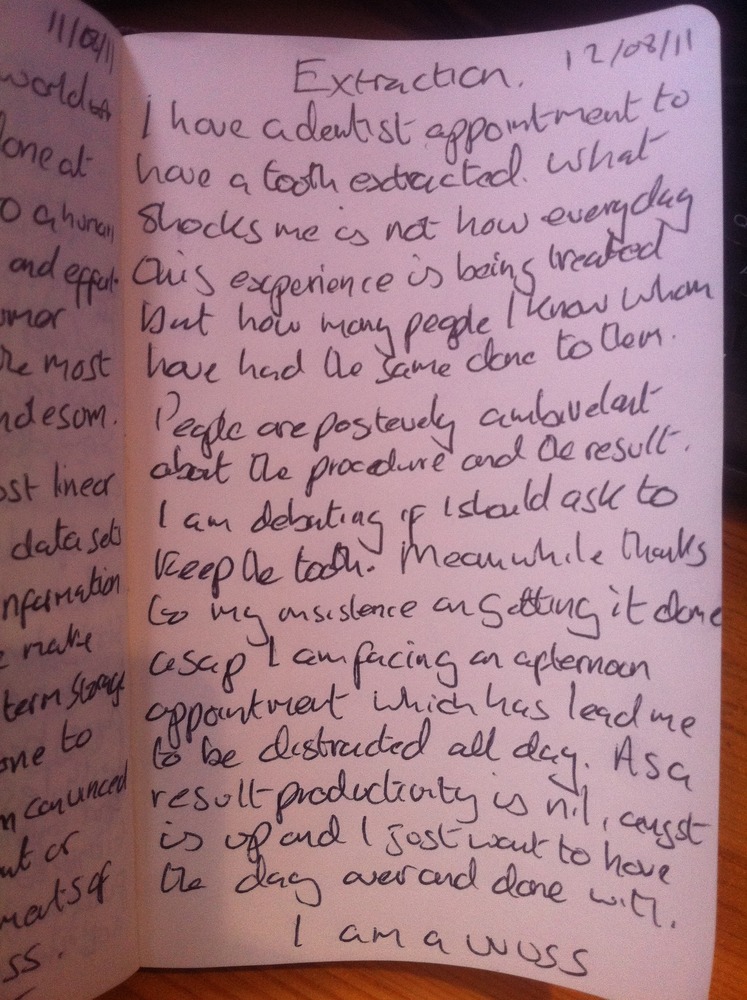 11/08/11
world
lone at
o a human
and effort
umor
the most
ndesom.
ost linear
data sets
nformation
e make
term storage
one to
m convinced
ut or
ments of
ss.
12/08/11
Extraction.
I have a dentist appointment to
have a tooth extracted. What
shocks me is not how everyday
this experience is being treated
but how many people I know whom
have had the same done to them.
People are postevely ambavelant
about the procedure and the result.
I am debating if I should ask to
keep the tooth. Meanwhile thanks
to my insistence on getting it done
asap I am facing an afternoon
appointment which has lead me
to be distracted all day. As a
result productivity is nil, angst
is up and I just want to have
the day over and done with.
I am a wuss